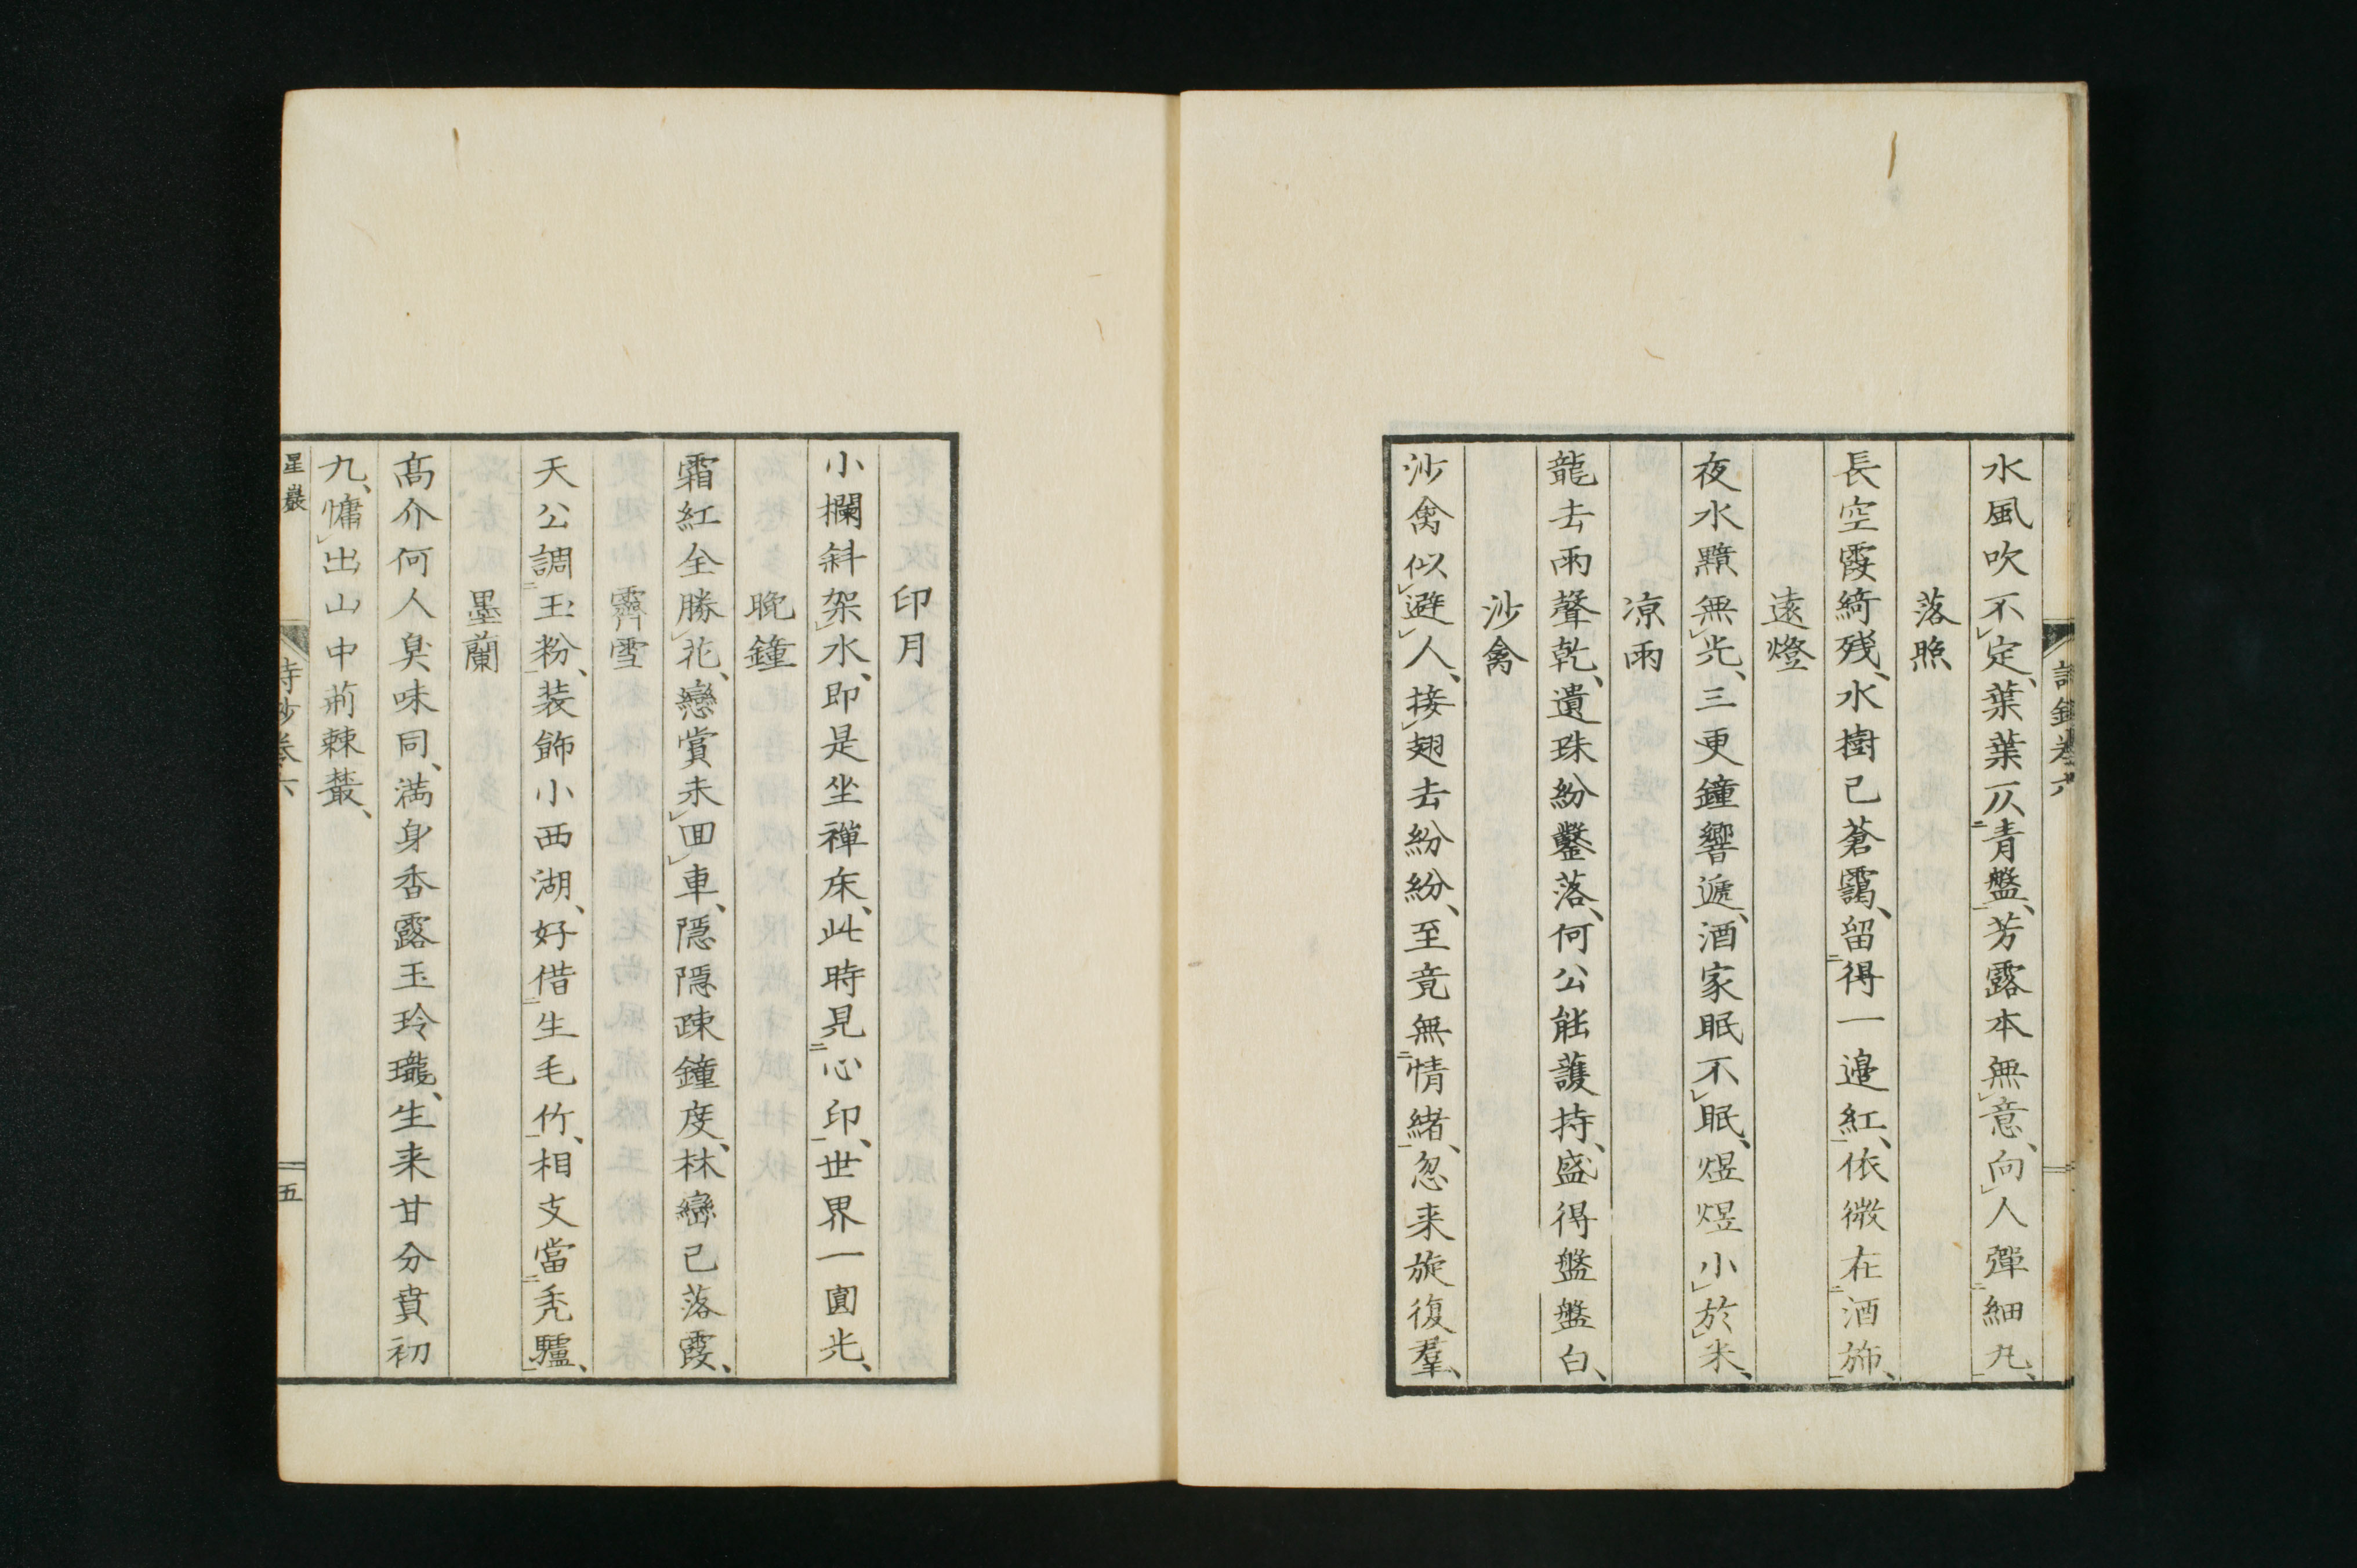 水風吹不定葉葉仄青盤芳露本無意向人彈細丸
落照
長空霞綺残水樹已蒼靄留得一邉紅依微在酒斾
遠燈
夜水黯無光三更鐘響遞酒家眠不眠煜煜小於米
凉雨
龍去雨聲乾遺珠紛鑿落何公能護持盛得盤盤白
沙禽
沙禽似避人接翅去紛紛至竟無情緒忽来旋復羣
印月
小欄斜架水即是坐禪牀此時見心印世界一圓光
晩鐘
霜紅全勝花戀賞未囬車隠隠疎鐘度林巒已落霞
霽雪
天公調玉粉装飾小西湖好借生毛竹相支當禿驢
墨蘭
髙介何人臭味同満身香露玉玲瓏生来甘分賁初
九慵出山中荊棘叢
星巖
詩鈔卷六
五